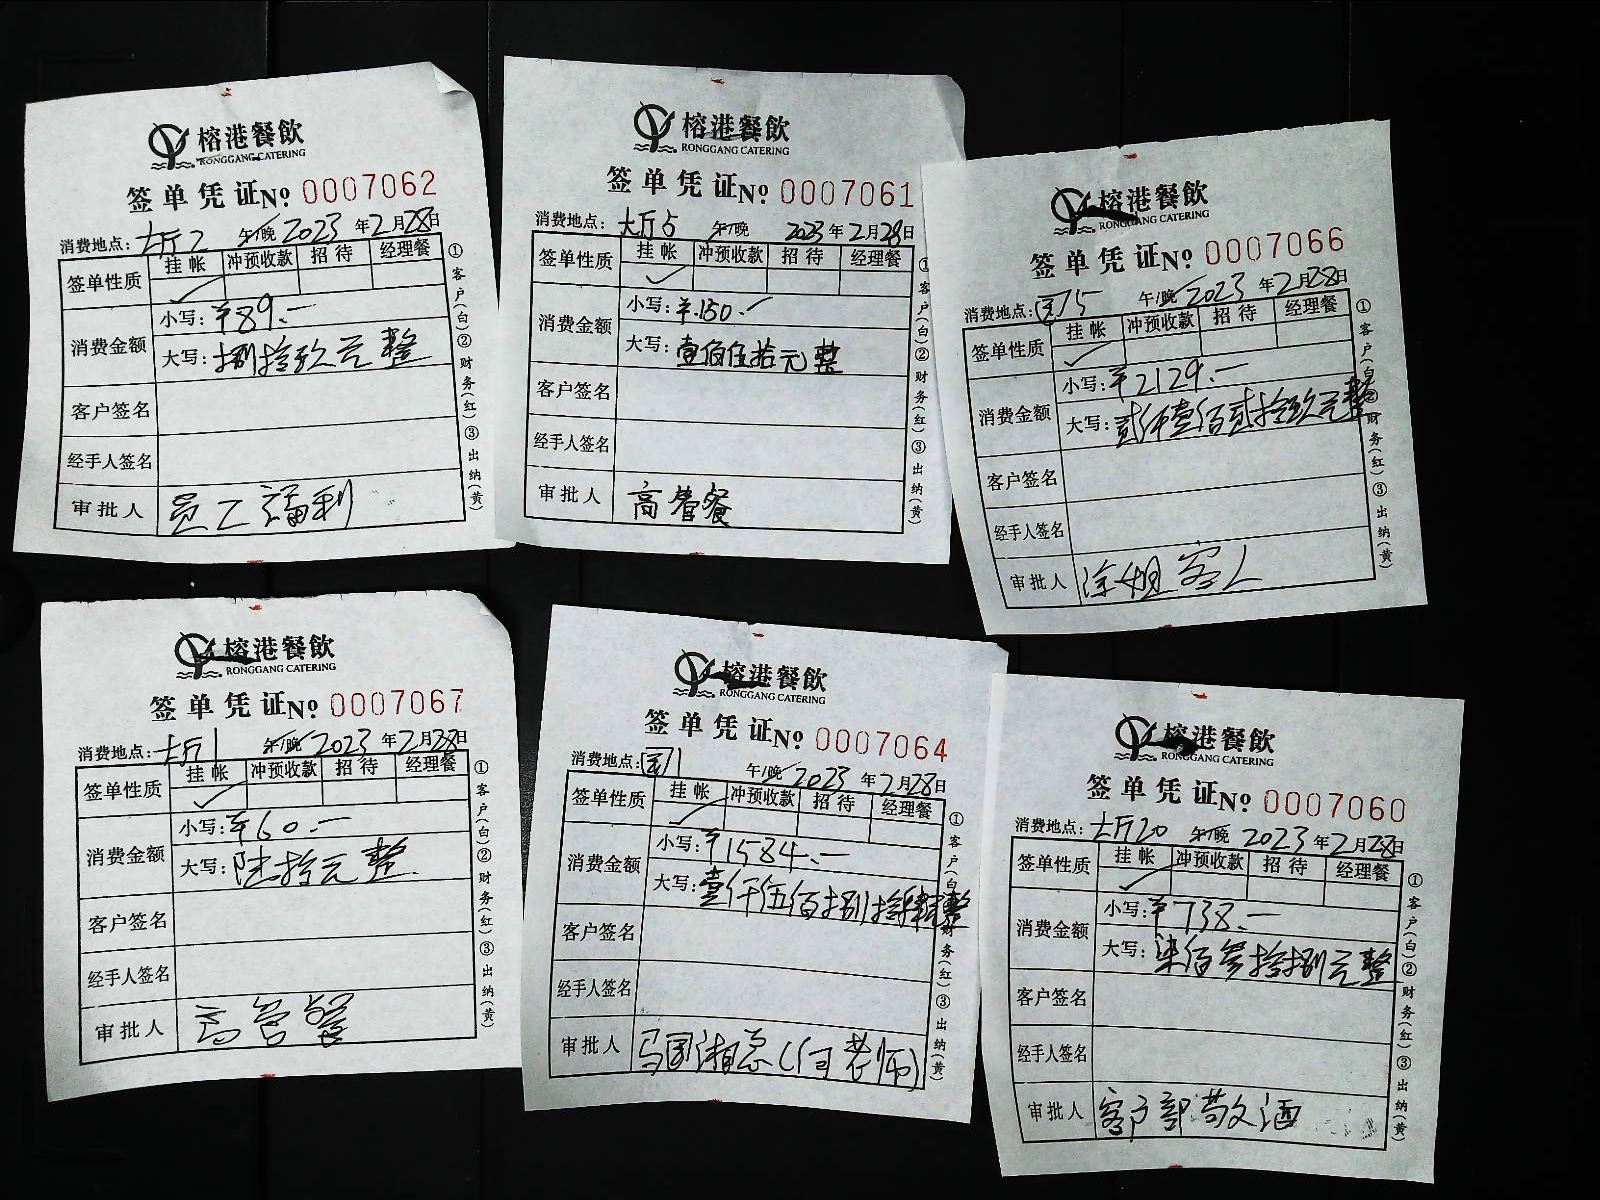 榕港餐飲
RONGGANG CATERING
签单凭证№ 0007062
消费地点：大厅2 午/晚 2023年2月28日
签单性质 挂帐 冲预收款 招待 经理餐
✓
消费金额 小写：¥89.—
大写：捌拾玖元整
客户签名
经手人签名
审批人 员工福利
①客户(白)②财务(红)③出纳(黄)
榕港餐飲
RONGGANG CATERING
签单凭证№ 0007061
消费地点：大厅5 午/晚 2023年2月28日
签单性质 挂帐 冲预收款 招待 经理餐
✓
消费金额 小写：¥150.—
大写：壹佰伍拾元整
客户签名
经手人签名
审批人 高管餐
①客户(白)②财务(红)③出纳(黄)
榕港餐飲
RONGGANG CATERING
签单凭证№ 0007066
消费地点：国5 午/晚 2023年2月28日
签单性质 挂帐 冲预收款 招待 经理餐
✓
消费金额 小写：¥2129.—
大写：贰仟壹佰贰拾玖元整
客户签名
经手人签名
审批人 徐姐客人
①客户(白)②财务(红)③出纳(黄)
榕港餐飲
RONGGANG CATERING
签单凭证№ 0007067
消费地点：大厅1 午/晚 2023年2月28日
签单性质 挂帐 冲预收款 招待 经理餐
✓
消费金额 小写：¥60.—
大写：陆拾元整
客户签名
经手人签名
审批人 高管餐
①客户(白)②财务(红)③出纳(黄)
榕港餐飲
RONGGANG CATERING
签单凭证№ 0007064
消费地点：国1 午/晚 2023年2月28日
签单性质 挂帐 冲预收款 招待 经理餐
✓
消费金额 小写：¥1584.—
大写：壹仟伍佰捌拾肆元整
客户签名
经手人签名
审批人 马国湘总(何老师)
①客户(白)②财务(红)③出纳(黄)
榕港餐飲
RONGGANG CATERING
签单凭证№ 0007060
消费地点：大厅20 午/晚 2023年2月28日
签单性质 挂帐 冲预收款 招待 经理餐
✓
消费金额 小写：¥738.—
大写：柒佰叁拾捌元整
客户签名
经手人签名
审批人 客户部敬酒
①客户(白)②财务(红)③出纳(黄)